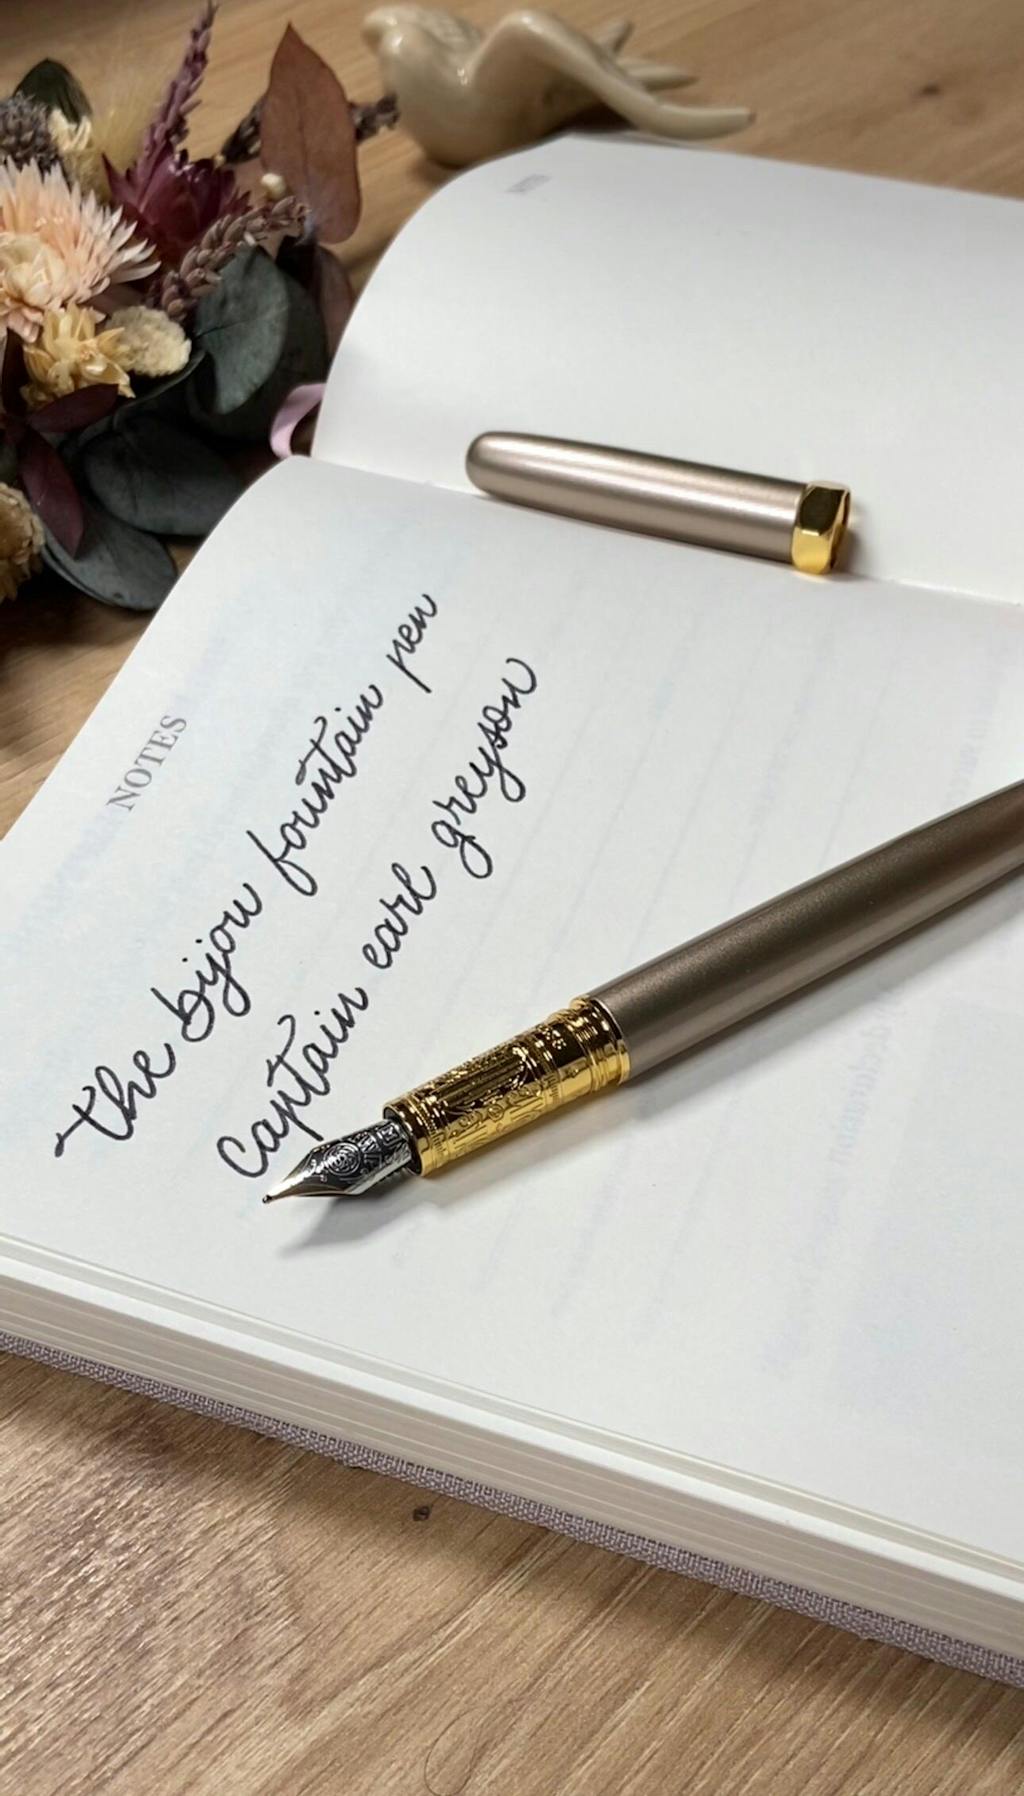 NOTES
the bijou fountain pen
Captain earl greyson